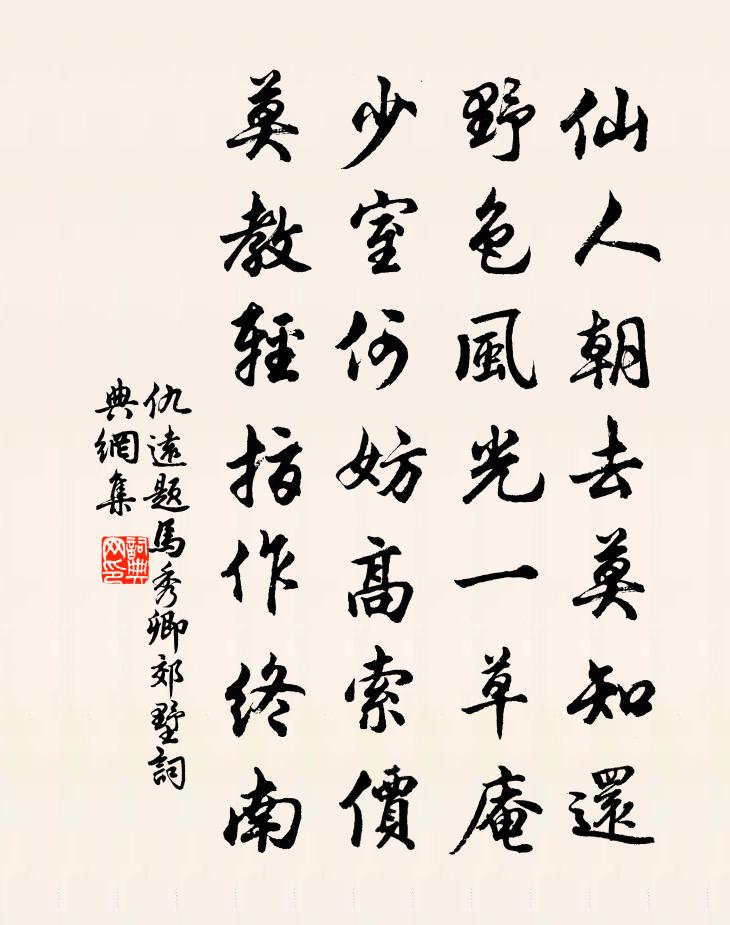 仙人朝去莫知還
野色風光一草庵
少室何妨高索價
莫教輕指作終南
仇遠題馬秀卿郊墅詞
典網集
詞典
网印